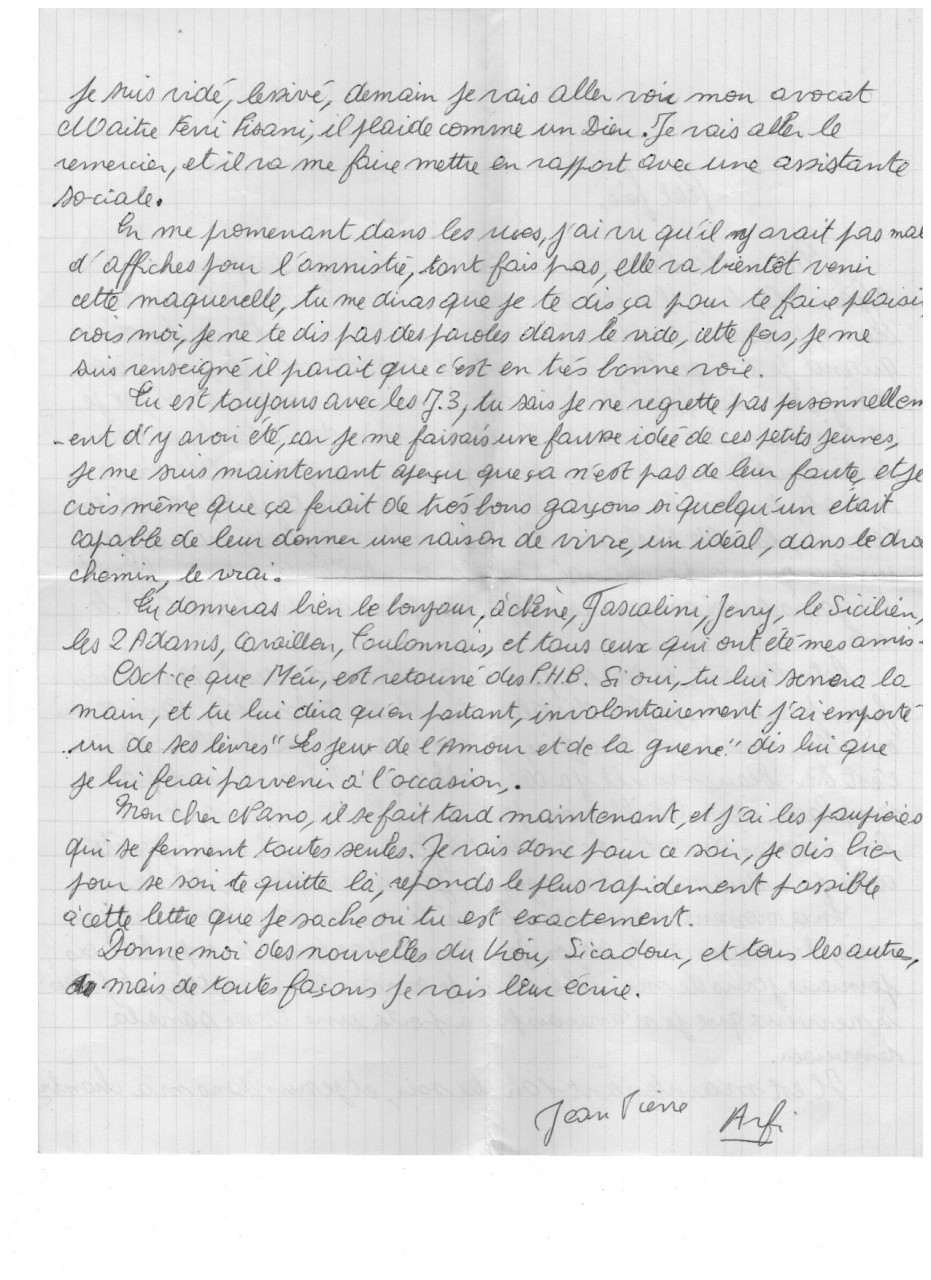 Je suis vidé, lessivé, demain je vais aller voir mon avocat
Maitre Ferri Pisani, il plaide comme un Dieu. Je vais aller le
remercier, et il va me faire mettre en rapport avec une assistante
sociale.
En me promenant dans les rues, j'ai vu qu'il n'y avait pas mal
d'affiches pour l'amnistié, tant fais pas, elle va bientôt venir
cette maquerelle, tu me diras que je te dis ça pour te faire plaisi
crois moi, je ne te dis pas des paroles dans le vide, cette fois, je me
suis renseigné il parait que c'est en très bonne voie.
Tu est toujours avec les J.3, tu sais je ne regrette pas personnellem
-ent d'y avoir été, car je me faisais une fausse idée de ces petits jeunes,
je me suis maintenant aperçu que ça n'est pas de leur faute, et je
crois même que ça ferait de très bons garçons si quelqu'un etait
capable de leur donner une raison de vivre, un idéal, dans le dro
chemin, le vrai.
Tu donneras bien le bonjour, à chène, Pascalini, Jerry, le Sicilien,
les 2 Adams, Cavaillon, Toulonnais, et tous ceux qui ont été mes amis.
Esct-ce que Méu, est retourné des P.H.B. Si oui, tu lui serrera la
main, et tu lui dira qu'en partant, involontairement j'ai emporté
un de ses livres "Les jeux de l'Amour et de la guerre" dis lui que
je lui ferai parvenir à l'occasion.
Mon cher Nano, il se fait tard maintenant, et j'ai les paupières
qui se ferment toutes seules. Je vais donc pour ce soir, je dis bien
pour se soir te quitte là, reponds le plus rapidement possible
à cette lettre que je sache où tu est exactement.
Donne moi des nouvelles du Sicadour, et tous les autre,
mais de toutes façons je vais leur écrire.
Jean Pierre Arfi